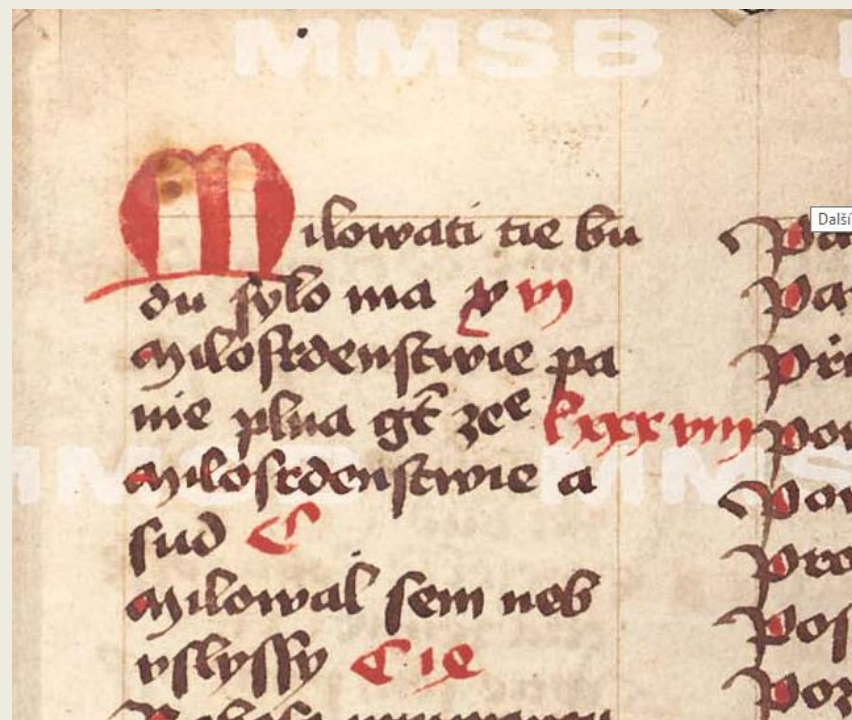 MMSB
Milowati tie bu
du sylo ma xvi
Milosrdenstwie pa
nie plna gt zee lxxxviii
Milosrdenstwie a
sud C
Milowal sem neb
vslyssy C ie
Další
Pa
Pa
Při
Pow
Pow
Pro
Pos
Poz